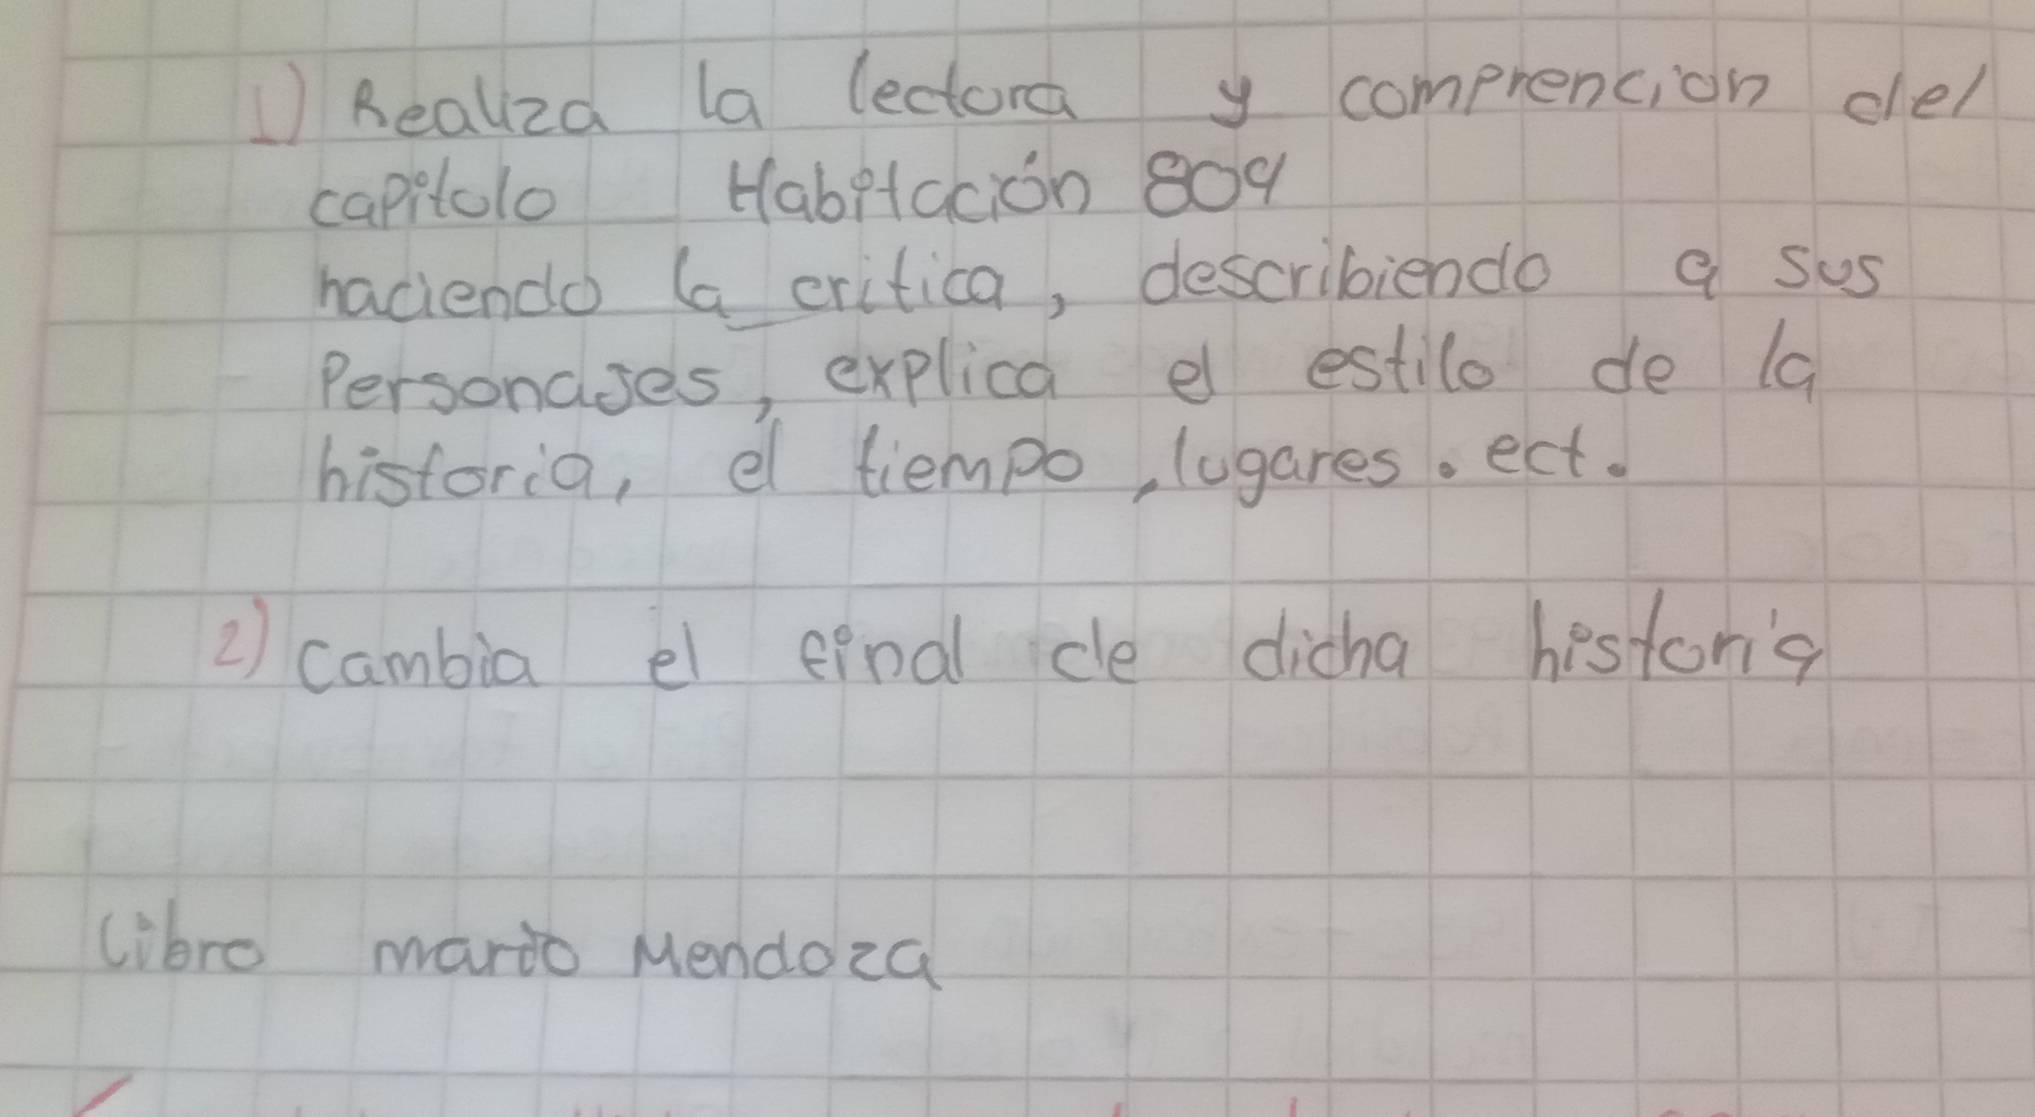 1) Realiza la lectora y comprencion del
capitolo Habitación 809
haciendo la critica, describiendo a sus
Personajes, explica el estilo de la
historia, el tiempo, lugares. ect.
2) cambia el final de dicha historia
libro mario Mendoza